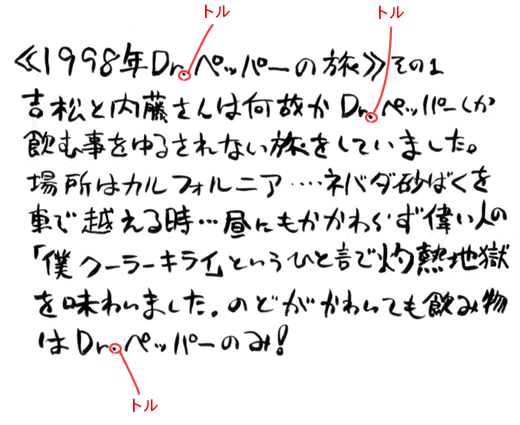 トル
トル
≪1998年Dr.ペッパーの旅≫その1
吉松と内藤さんは何故かDr.ペッパーしか
飲む事をゆるされない旅をしていました。
場所はカルフォルニア‥‥ネバダ砂ばくを
車で越える時…昼にもかかわらず偉い人の
「僕クーラーキライ」というひと言で灼熱地獄
を味わいました。のどがかわいても飲み物
はDr.ペッパーのみ!
トル